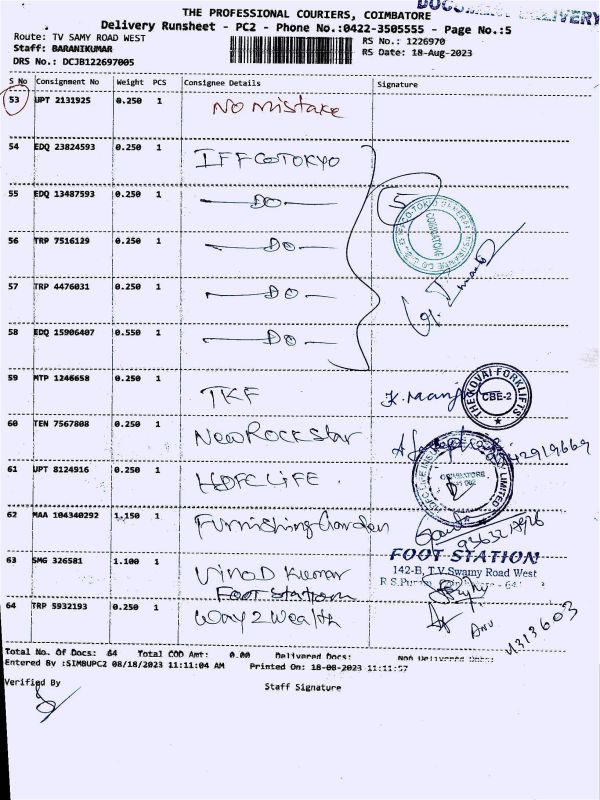 THE PROFESSIONAL COURIERS, COIMBATORE
DOCUMENT DELIVERY
Delivery Runsheet - PC2 - Phone No.:0422-3505555 - Page No.:5
Route: TV SAMY ROAD WEST
RS No.: 1226970
Staff: BARANIKUMAR
RS Date: 18-Aug-2023
DRS No.: DCJB122697005
S No Consignment No Weight PCS Consignee Details Signature
53 UPT 2131925 0.250 1 No Mistake
54 EDQ 23824593 0.250 1 IFFCOTOKYO
55 EDQ 13487593 0.250 1 —DO— 5
56 TRP 7516129 0.250 1 —DO—
COIMBATORE
57 TRP 4476031 0.250 1 —DO—
58 EDQ 15906407 0.550 1 —DO—
59 MTP 1246658 0.250 1 TKF
THE KOVAI FORKLIFTS
CBE-2
60 TEN 7567808 0.250 1 New Rock Star
61 UPT 8124916 0.250 1 HDFC LIFE
62 MAA 104340292 1.150 1 Furnishing Garden
63 SMG 326581 1.100 1 Vinod Kumar
Foot Station
FOOT STATION
142-B, T.V.Swamy Road West
64 TRP 5932193 0.250 1 Way 2 Wealth
Total No. Of Docs: 64 Total COD Amt: 0.00 Delivered Docs: Non Delivered Docs:
Entered By :SIMBUPC2 08/18/2023 11:11:04 AM Printed On: 18-08-2023 11:11:07
Verified By
Staff Signature